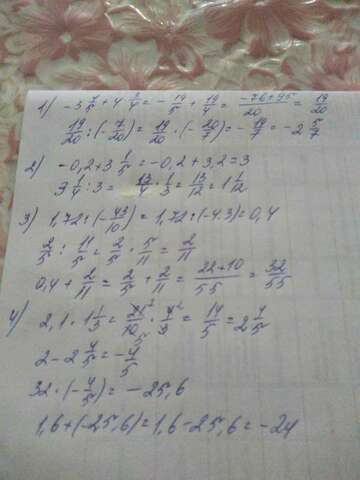 1) -3 4/5 + 4 3/4 = -19/5 + 19/4 = (-76+95)/20 = 19/20
19/20 : (-7/20) = 19/20 · (-20/7) = -19/7 = -2 5/7
2) -0,2+3 1/5 = -0,2+3,2=3
3 1/4 : 3 = 13/4 · 1/3 = 13/12 = 1 1/12
3) 1,72 : (-43/10) = 1,72 : (-4.3) = 0,4
2/5 : 11/5 = 2/5 · 5/11 = 2/11
0,4 + 2/11 = 2/5 + 2/11 = (22+10)/55 = 32/55
4) 2,1 · 1 1/3 = 21/10 · 4/3 = 14/5 = 2 4/5
2 - 2 4/5 = -4/5
32 · (-4/5) = -25,6
1,6+(-25,6)=1,6-25,6=-24